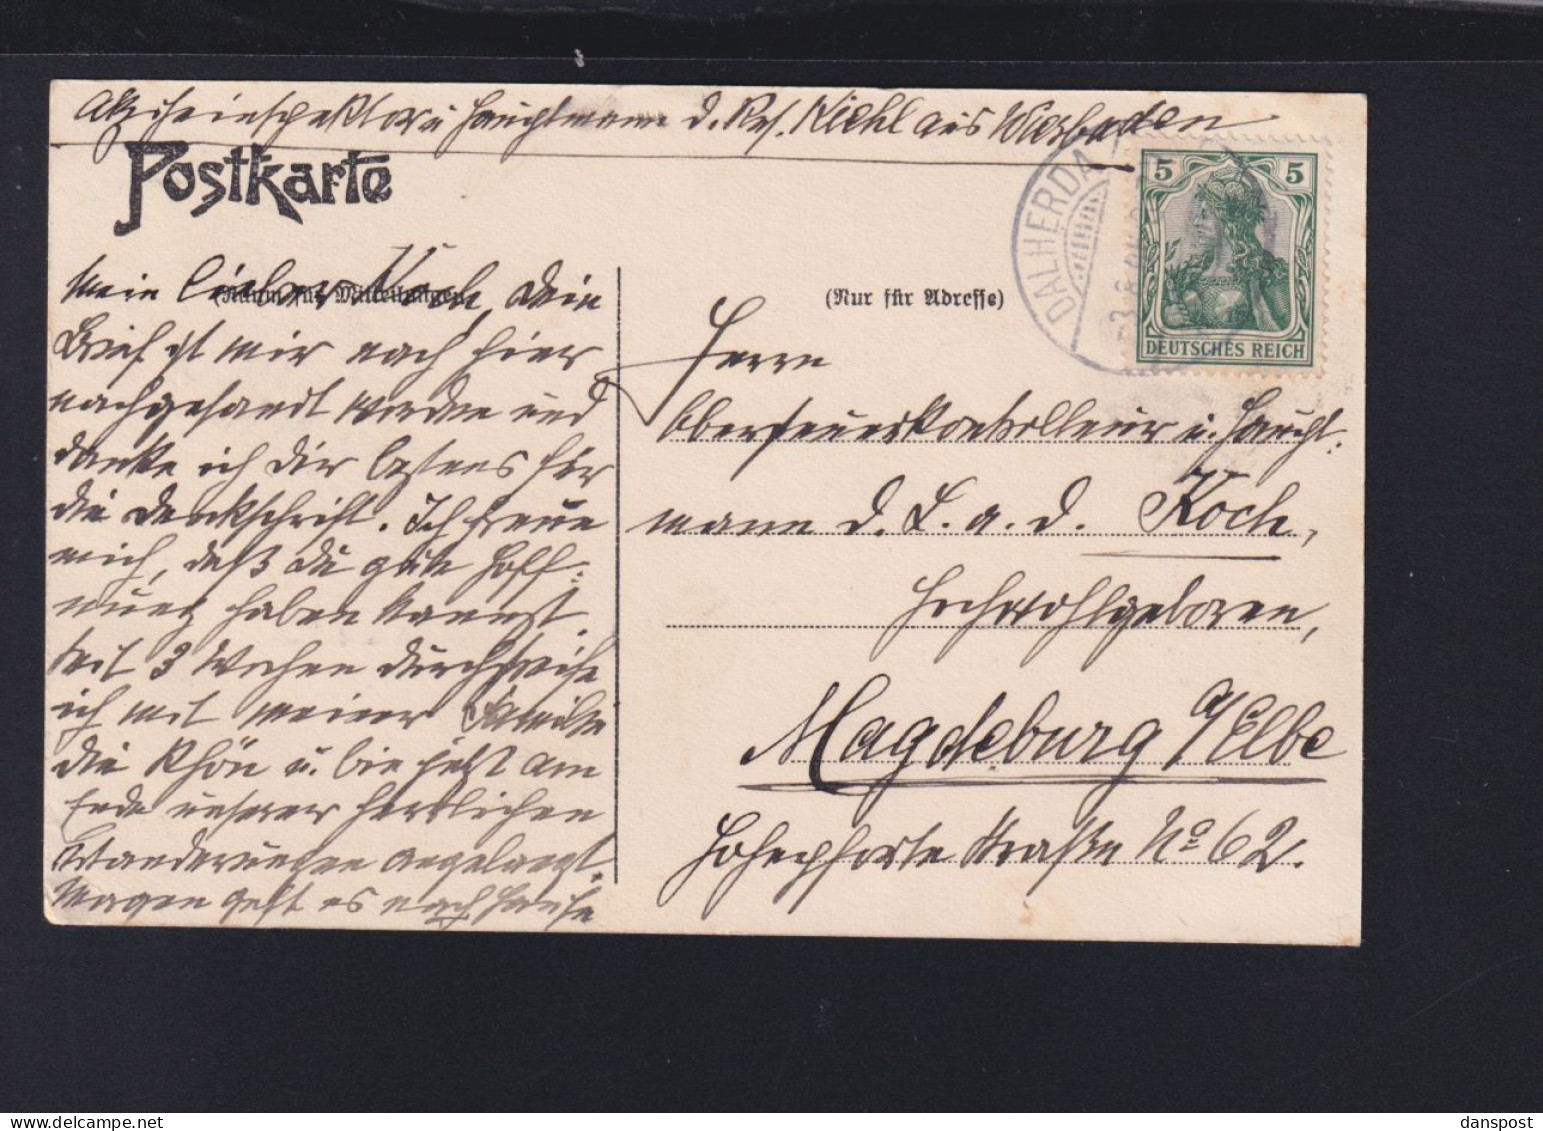 Akziseinspektor u Hauptmann d. Res. Riehl aus Wiesbaden
Postkarte
(Raum für Mitteilungen)
Mein lieber Koch, Dein
Brief ist mir nach hier
nachgesandt worden und
danke ich Dir bestens für
die Denkschrift. Ich freue
mich, daß Du gute Hoff-
nung haben kannst.
Seit 3 Wochen durchstreife
ich mit meiner Familie
die Rhön u. bin jetzt am
Ende unserer herrlichen
Wanderungen angelangt.
Morgen geht es nach Hause
(Nur für Adresse)
DALHERDA
5 5
DEUTSCHES REICH
Herrn
Obersteuerkontrolleur u. Haupt-
mann d. L. a. D. Koch,
Hochwohlgeboren,
Magdeburg a/Elbe
Hohepforte Straße No 62.
danspost